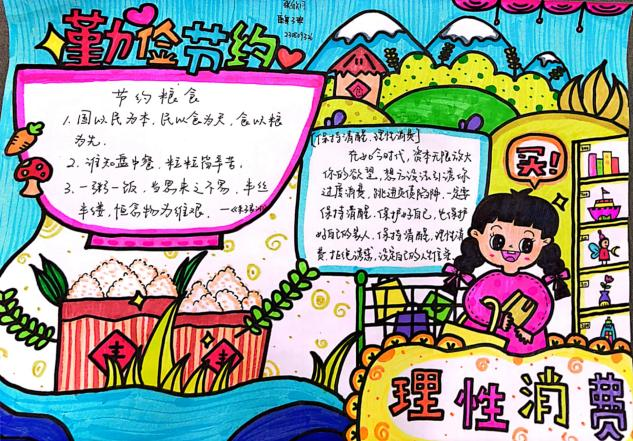 勤俭节约
节约粮食
1.国以民为本,民以食为天,食以粮
为先.
2.谁知盘中餐,粒粒皆辛苦.
3.一粥一饭,当思来之不易,半丝
半缕,恒念物力维艰.
[保持清醒,理性消费]
在如今时代,资本无限放大
你的欲望,想方设法引诱你
过度消费,跳进负债陷阱,一定要
保持清醒,保护好自己,也保护
好自己的家人,保持清醒,理性消
费,拒绝诱惑,
买!
仓
丰
丰
理性消费